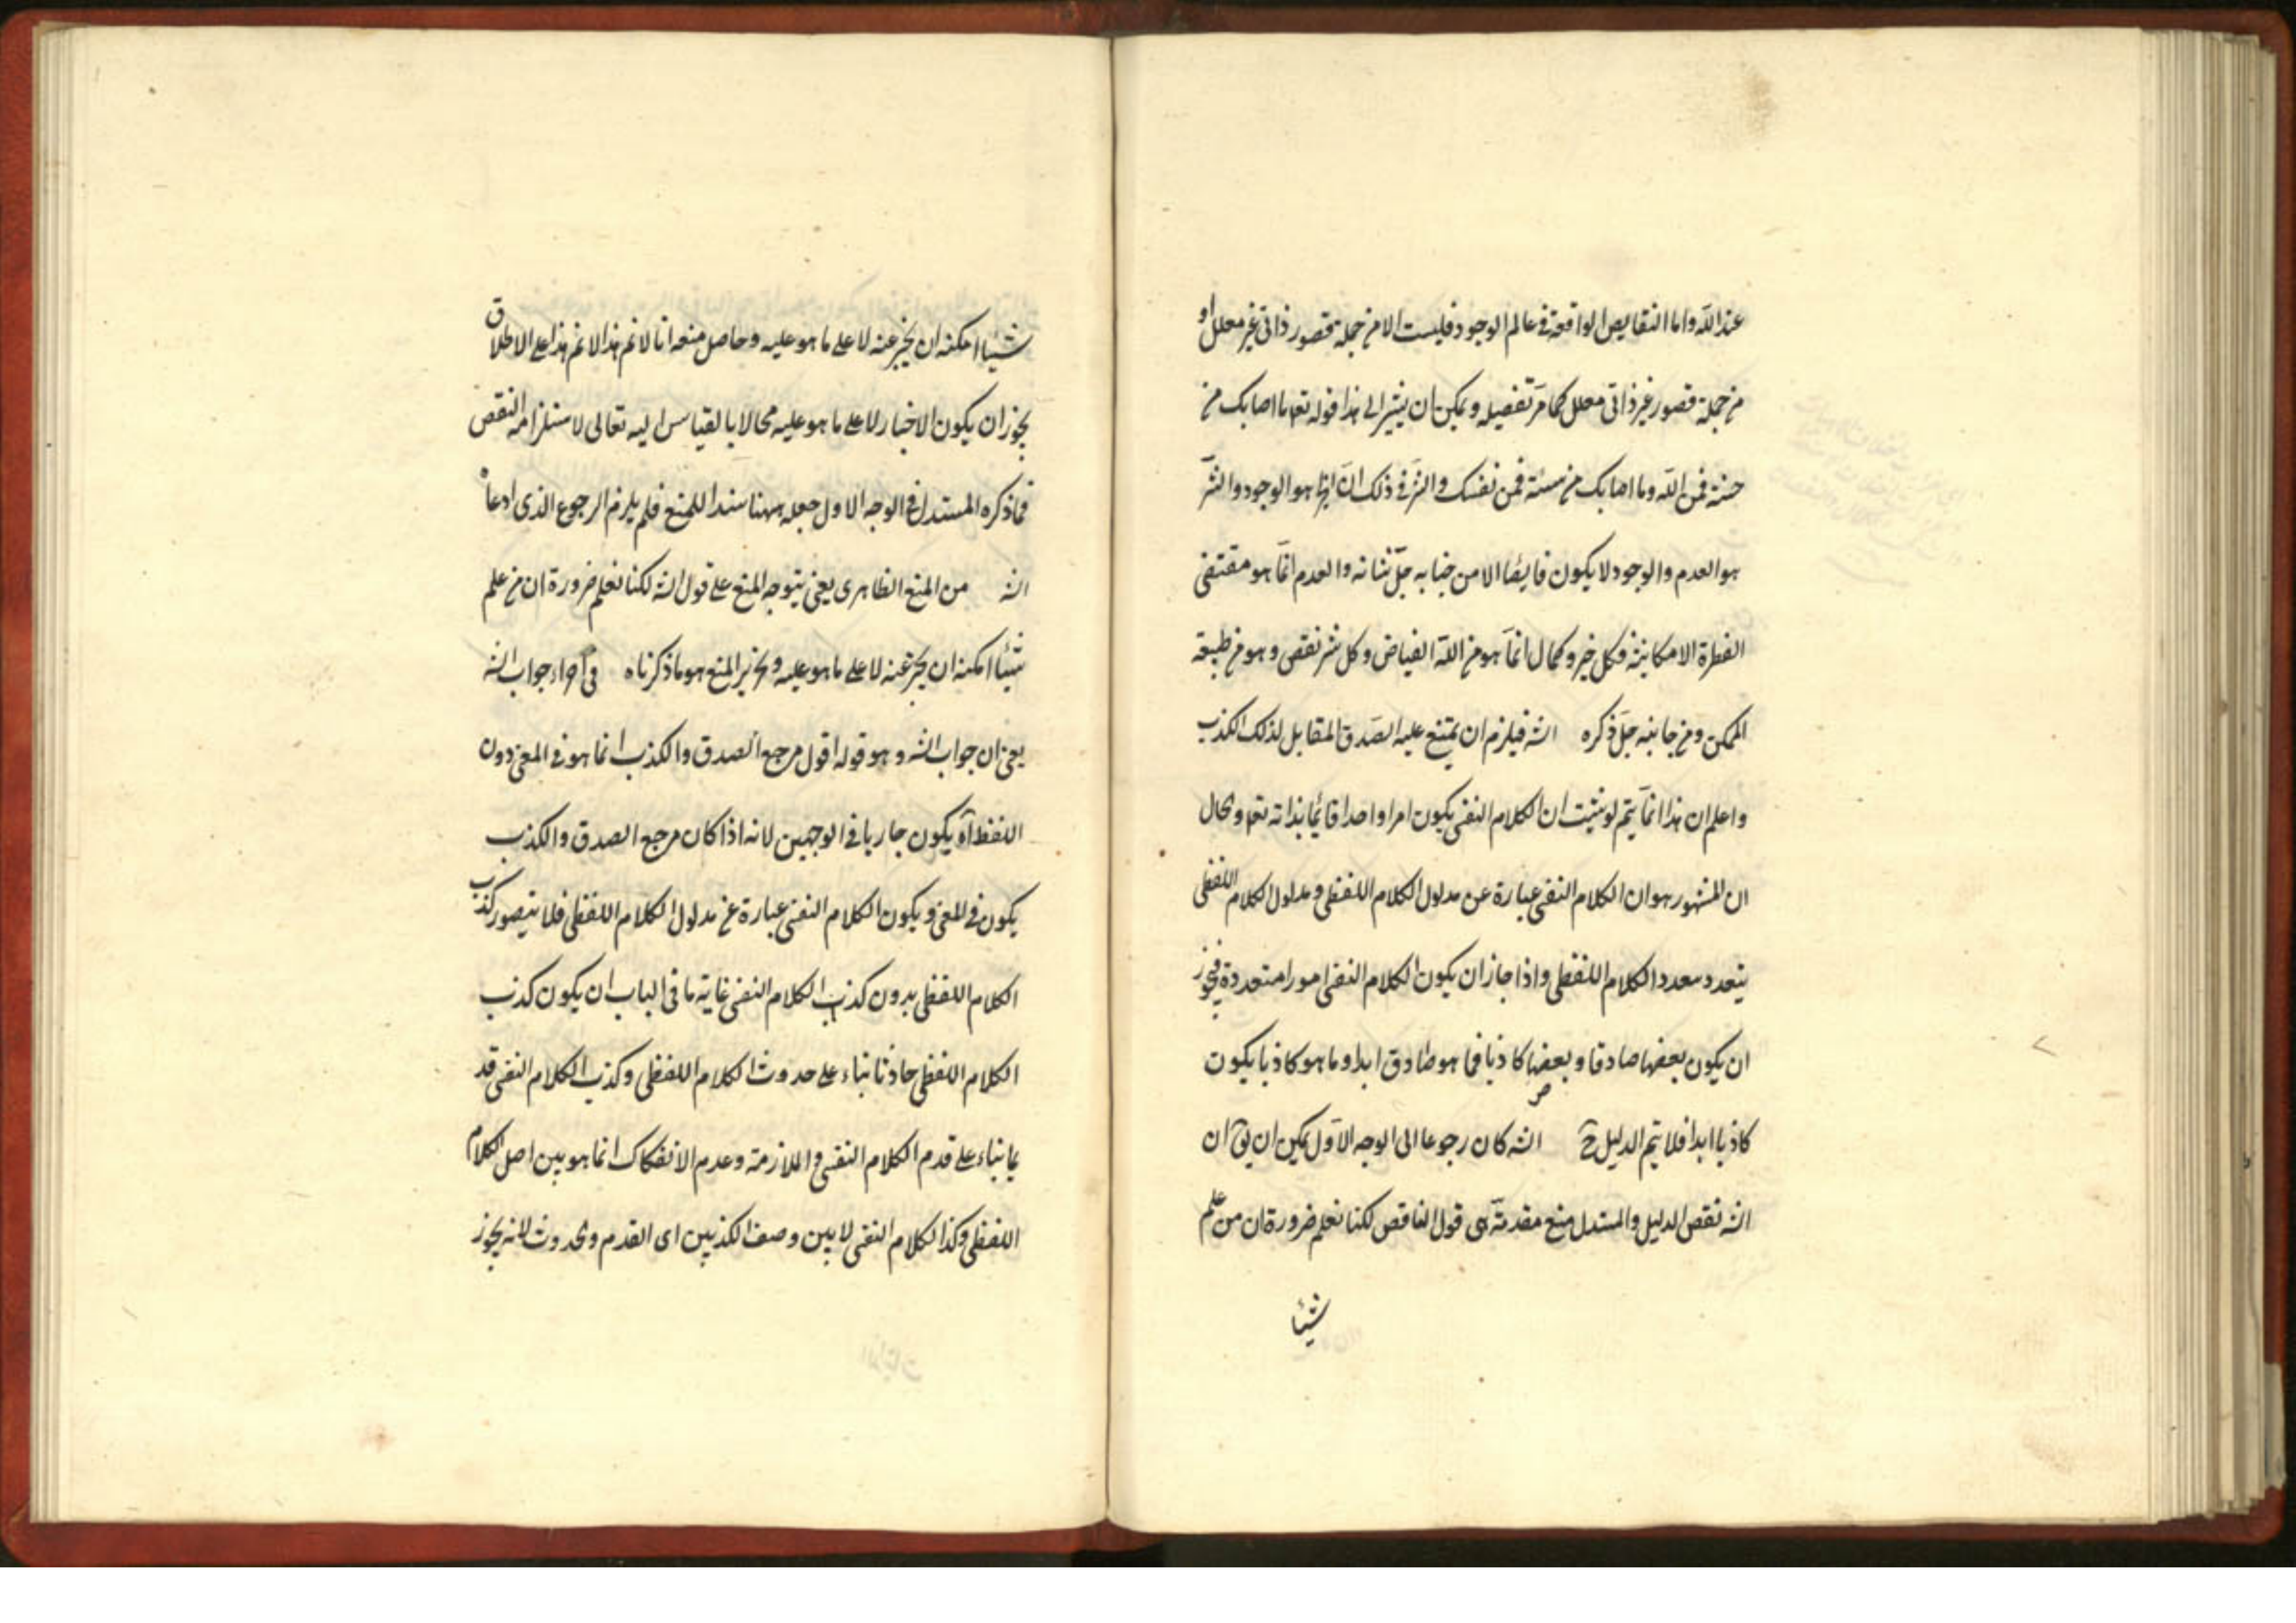 عند الله واما النقايص الواقعة في عالم الوجود فليست الا من جملة قصور ذاتي غير معلل او
من جملة قصور غير ذاتي معلل كما مرّ تفصيله ويمكن ان يشير الى هذا قوله تعه ما اصابك من
حسنة فمن الله وما اصابك من سيئة فمن نفسك والسّر في ذلك انّ الخير هو الوجود والشّر
هو العدم والوجود لا يكون فايضا الا من جنابه جلّ شانه والعدم انّما هو مقتضى
الفطرة الامكانية فكل خير وكمال انّما هو من الله الفياض وكل شر نقص وهو من طبيعة
الممكن ومن جانبه جلّ ذكره الش فيلزم ان يمتنع عليه الصّدق المقابل لذلك الكذب
واعلم ان هذا انّما يتم لو يثبت ان الكلام النفسى يكون امرا واحدا قائما بذاته تعه والحال
ان المشهور هو ان الكلام النفسى عبارة عن مدلول الكلام اللفظى ومدلول الكلام اللفظى
يتعدد بتعدد الكلام اللفظى واذا جاز ان يكون الكلام النفسى امورا متعددة فيجوز
ان يكون بعضها صادقا وبعضها كاذبا فما هو صادق ابدا وما هو كاذبا يكون
كاذبا ابدا فلا يتم الدليل ح الش كان رجوعا الى الوجه الاوّل يمكن ان يق ان
الش نقض الدليل والمستدل منع مقدمته هى قول الناقض لكنا نعلم ضرورة ان من علم
شيئا
شيئا امكنه ان يخبر عنه لا على ما هو عليه وحاصل منعه انا لا نم هذا الا نم هذا على الاطلاق
يجوز ان يكون الاخبار لا على ما هو عليه محالا بالقياس اليه تعالى لاستلزامه النقص
فما ذكره المستدل في الوجه الاول جعله ههنا سندا للمنع فلم يلزم الرجوع الذى ادعاه
الش من المنع الظاهرى يعنى يتوجه المنع على قول الش لكنا نعلم ضرورة ان من علم
شيئا امكنه ان يخبر عنه لا على ما هو عليه وتحرير المنع هو ما ذكرناه في اجراء جواب الش
يعنى ان جواب الش وهو قوله اقول مرجع الصدق والكذب انما هو في المعنى دون
اللفظ آه يكون جاريا في الوجهين لانه اذا كان مرجع الصدق والكذب
يكون في المعنى ويكون الكلام النفسى عبارة عن مدلول الكلام اللفظى فلا يتصور كذب
الكلام اللفظى بدون كذب الكلام النفسى غاية ما في الباب ان يكون كذب
الكلام اللفظى حادثا بناء على حدوث الكلام اللفظى وكذب الكلام النفسى قد
يما بناء على قدم الكلام النفسى والملازمة وعدم الانفكاك انما هو بين اصل الكلام
اللفظى وكذا الكلام النفسى لا بين وصف الكذبين اى القدم والحدوث لانه يجوز